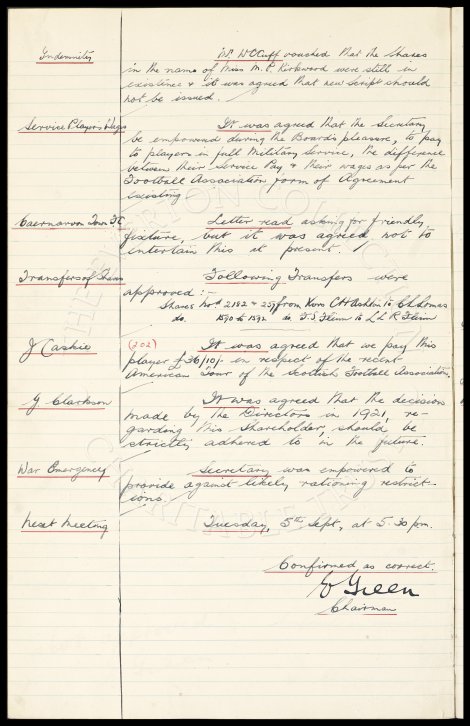 Indemnities Mr W C Cuff vouched that the Shares
in the name of Miss M. P. Kirkwood were still in
existence & it was agreed that new Script should
not be issued.
Service Players' Wages It was agreed that the Secretary
be empowered during the Board's pleasure, to pay
to players in full Military Service, the difference
between their Service Pay & their wages as per the
Football Association form of Agreement
existing
Caernarvon Town FC Letter read asking for friendly
fixture, but it was agreed not to
entertain this at present.
Transfers of Shares Following Transfers were
approved:-
Shares Nos 2182 & 257 from Exors C H Ashlin to C L Lomas
do. 1590 to 1592 do. T. S. Flinn to L L R Flinn
J Caskie (202) It was agreed that we pay this
player £36/10/- in respect of the recent
American Tour of the Scottish Football Association
G. Clarkson It was agreed that the decision
made by the Directors in 1921, re-
garding this Shareholder, should be
strictly adhered to in the future.
War Emergency Secretary was empowered to
provide against likely rationing restrict-
ions.
Next Meeting Tuesday, 5th Sept, at 5.30 pm.
Confirmed as correct.
E Green
Chairman